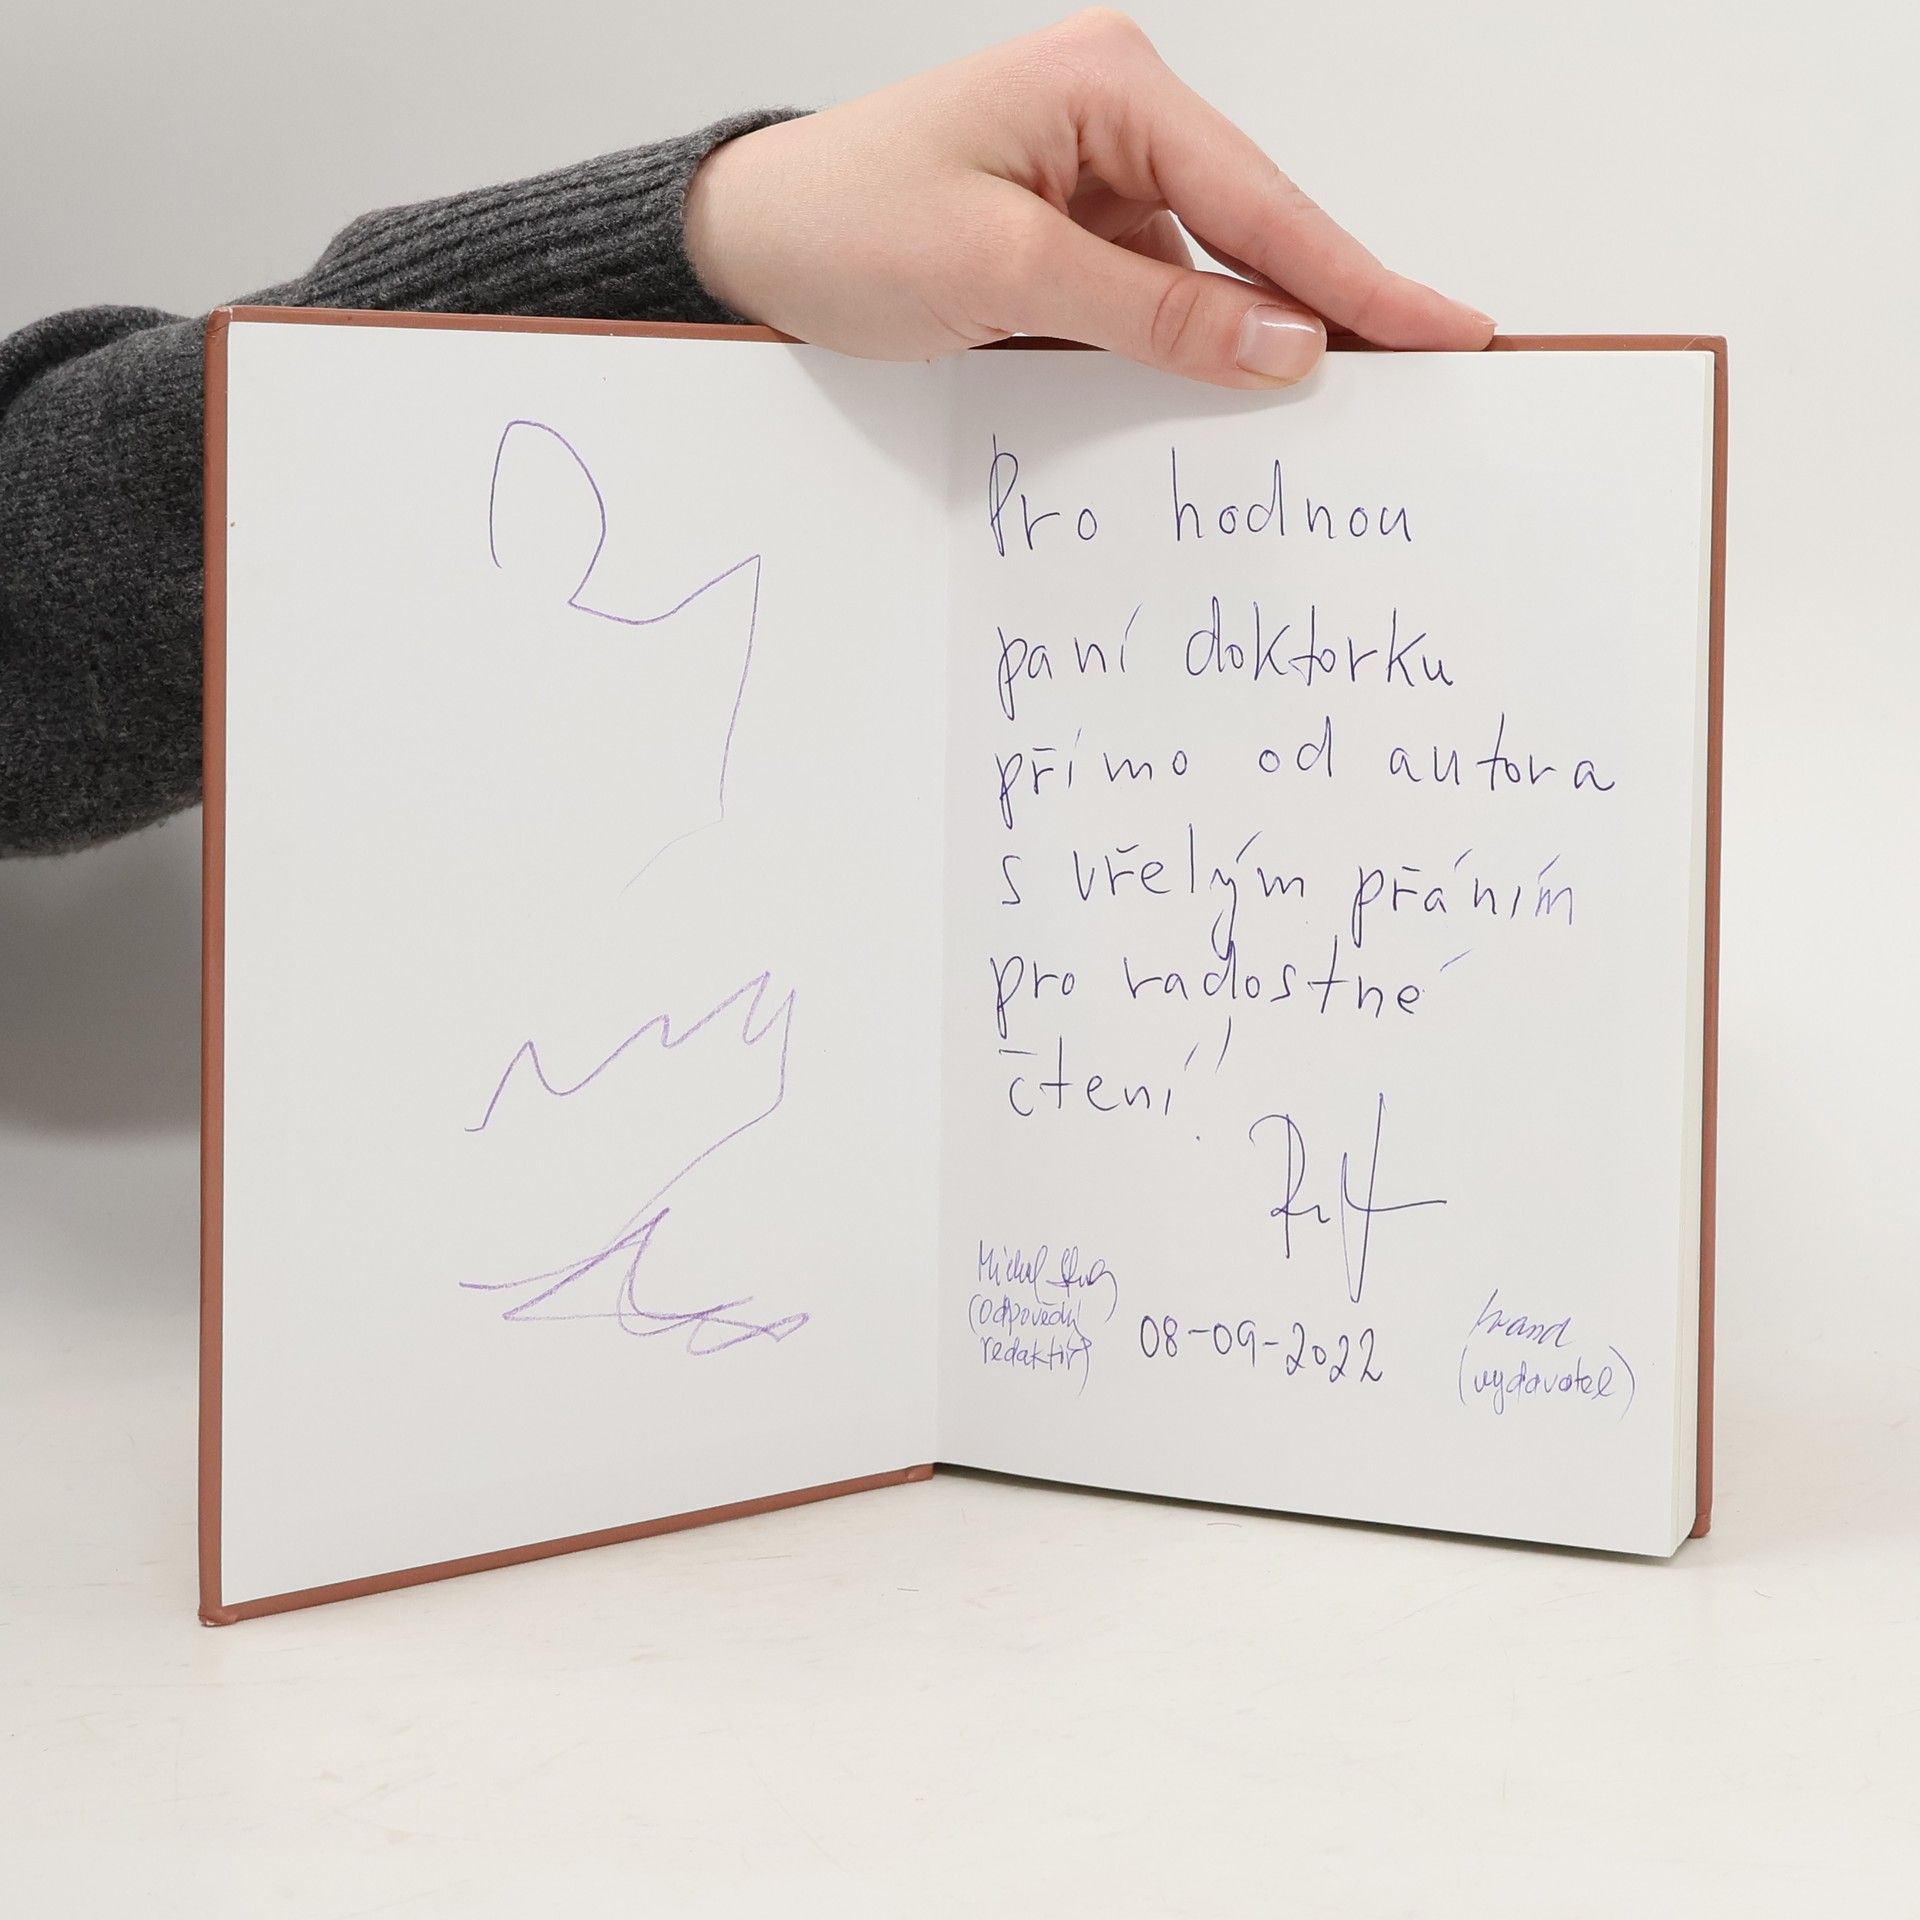 Pro hodnou
paní doktorku
přímo od autora
s vřelým přáním
pro radostné
čtení!
Michal
(odpovědný
redaktor)
08-09-2022
(vydavatel)